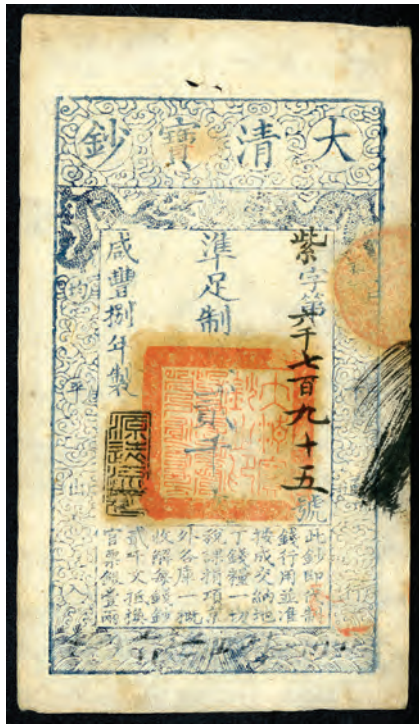 大清寶鈔
紫字第六千七百九十五號
準足制
貳千
咸豐捌年製
源遠流長
行
均平出入
此鈔即代制
錢行用並准
按成交納地
丁錢糧一切
稅課捐項京
外各庫一概
收解每錢鈔
貳千文抵換
官票銀壹兩